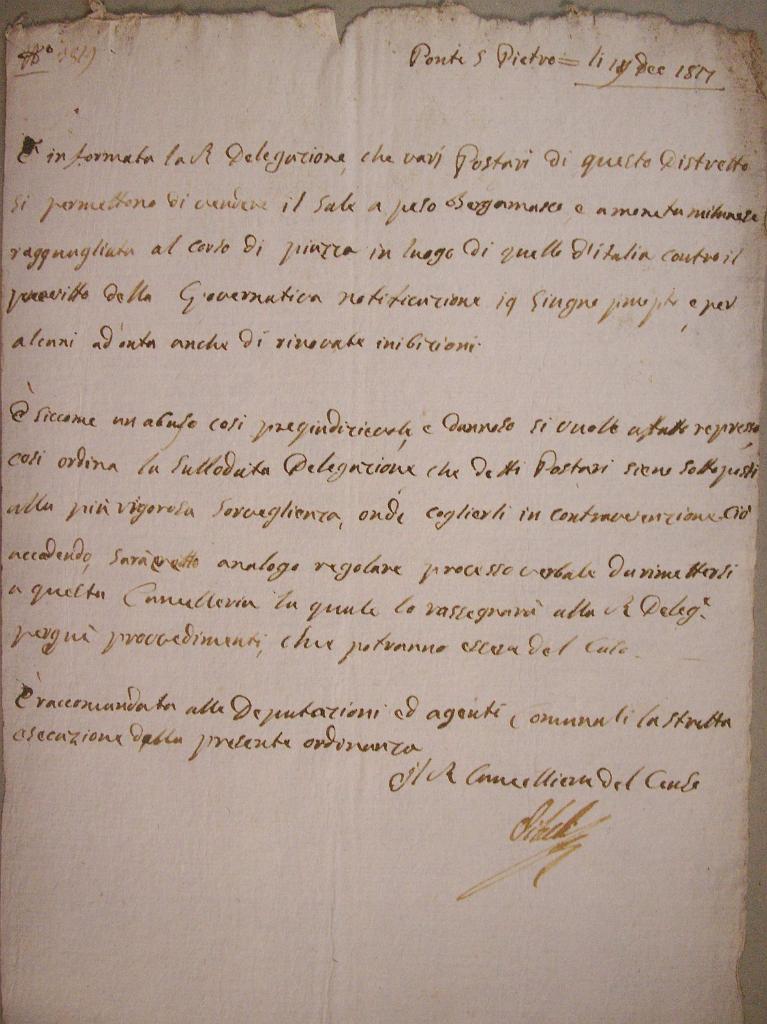 N° 1819
Ponte S Pietro = li 19 Dec 1817
È informata la R Delegazione, che varj Postari di questo Distretto
si permettono di vendere il Sale a peso Bergamasco, e a moneta milanese
ragguagliata al corso di piazza in luogo di quello d'italia contro il
prescritto della Governativa notificazione 19 Giugno e per
alcuni ad onta anche di rinovate inibizioni.
E siccome un abuso così pregiudizievole, e dannoso si vuole affatto represso
così ordina la Sullodata Delegazione che detti Postari siene sottoposti
alla più vigorosa Sorveglienza, onde coglierli in contravvenzione. Ciò
accadendo, sarà eretto analogo regolare processo verbale da rimettersi
a questa Cancelleria la quale lo rassegnarà alla R Deleg.e
pergue provvedimenti, che potranno essere del Caso.
È raccomandata alle Deputazioni ed agenti Comunali la stretta
esecuzione della presente ordinanza
Il R Cancelliere del Censo